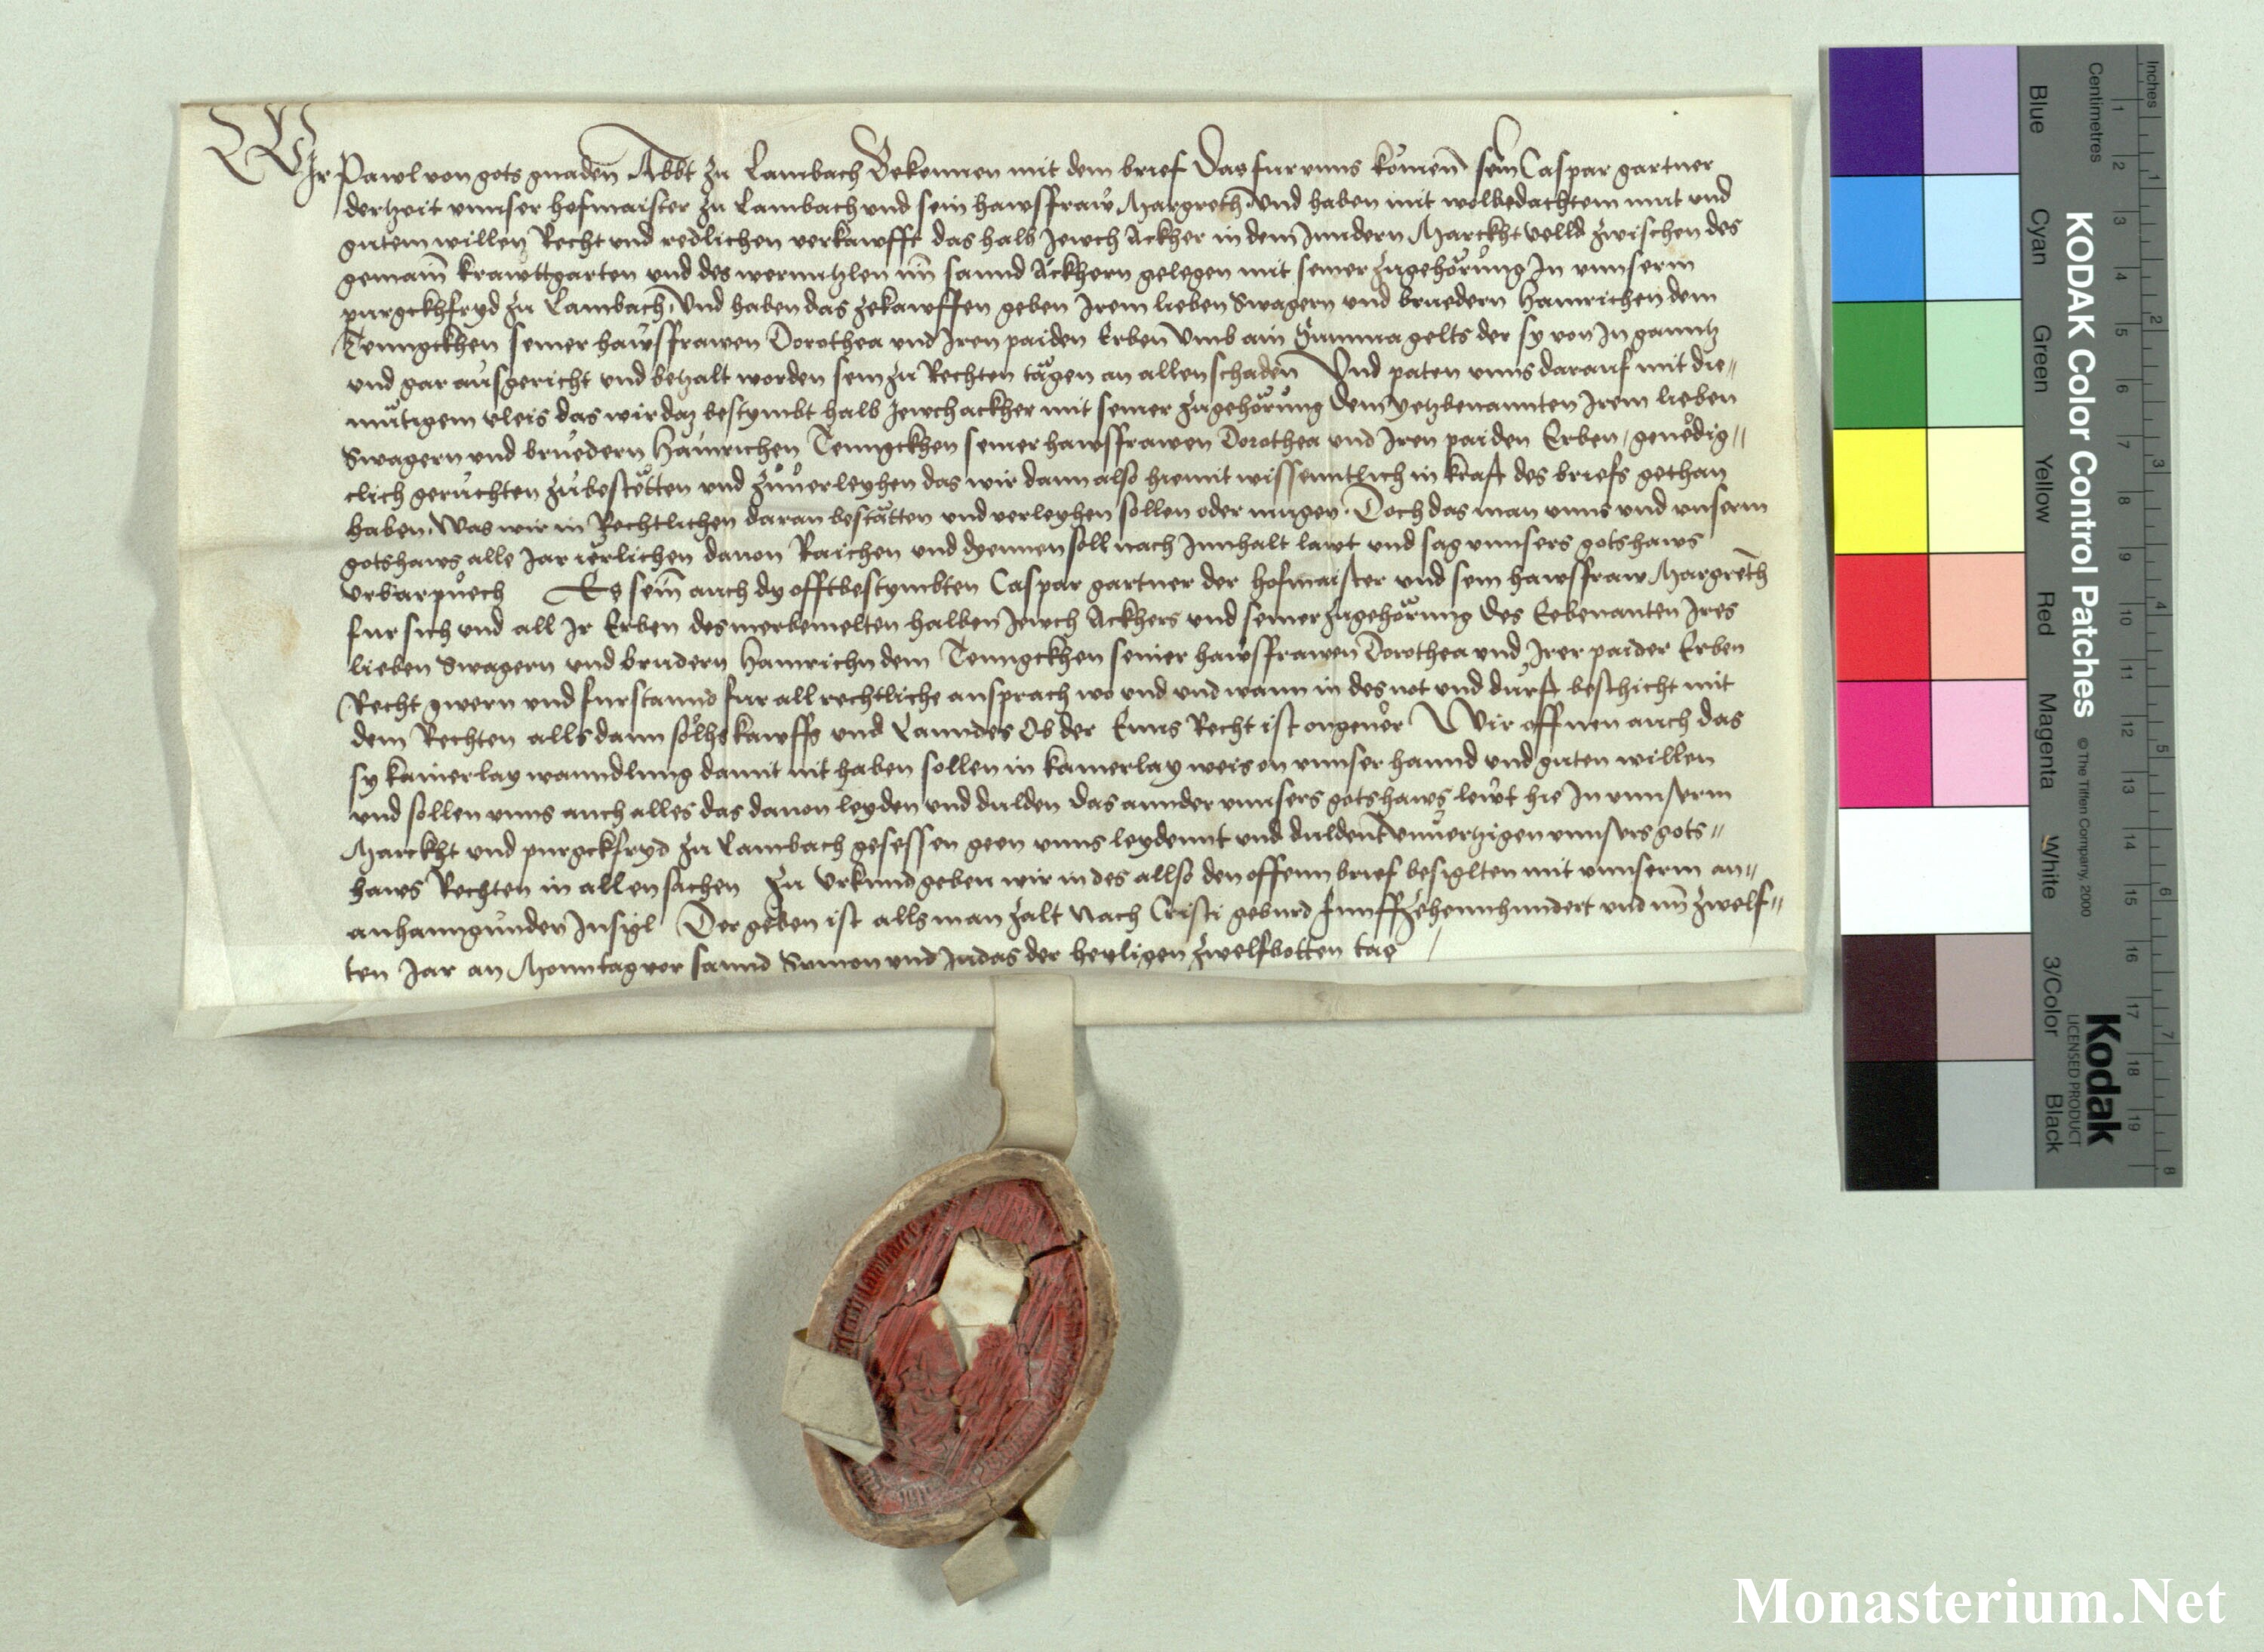 Wir Pawl von gots gnaden Abbt zu Lambach Bekennen mit dem brief Das fur vnns komen sein Caspar gartner
derzeit vnnser hofmaister zu Lambach vnd sein hawsffraw Margreth vnd haben mit wolbedachtem mut vnd
gutem willen Recht vnd redlichen verkawfft das halb Jewch Ackher in dem Inndern Marckht velld zwischen des
gemain krawttgarten vnd des wermutzlen im sannd Ackhern gelegen mit seiner zugehorung In vnnserm
purgckhfryd zu Lambach, Vnd haben das zekawffen geben Irem lieben Swagern vnd bruedern Hainrichen dem
Tenngckhen seiner hawsffrawen Dorothea vnd Iren paiden Erben Vmb ain Summa gelts der sy von In ganntz
vnd gar ausgericht vnd betzalt worden sein zu Rechten tagen an allen schaden Vnd paten vnns darauf mit die„
mutigem vleis das wir daz bestymbt halb Jewch ackher mit seiner zugehorung dem yetzbenannten Irem lieben
Swagern vnd bruedern Hainrichen Tenngckhen seiner hawsffrawen Dorothea vnd Iren paiden Erben, genedig„
clich geruchten zubestetten vnd zuuerleyhen das wir dann also hiemit wissenntlich in krafft des briefs gethan
haben, Was wir in Rechtlichen daran bestatten vnd verleyhen sollen oder mugen. Doch das man vnns vnd vnserm
gotshaws alle Jar ierlichen dauon Raichen vnd dyennen soll nach Innhalt lawt vnd sag vnnsers gotshaws
vrbarpuech Es sein auch dy offtbestymbten Caspar gartner der hofmaister vnd sein hawsffraw Margreth
fur sich vnd all Ir Erben des merbemelten halben Jewch Ackhers vnd seiner zugehorung des Eebenanten Ires
lieben Swagern vnd brudern Hainrichn dem Tenngckhen seiner hawsffrawen Dorothea vnd Irer paider Erben
Recht gwern vnd furstannd fur all rechtliche ansprach wo vnd vnd wann in des not vnd durft beschicht mit
dem Rechten alls dann solhs kawffs vnd Lanndes Ob der Enns Recht ist ongeuer Wir offnen auch das
sy kainerlay wanndlung damit nit haben sollen in kainerlay weis on vnnser hannd vnd guten willen
vnd sollen vnns auch alles das dauon leyden vnd dulden das annder vnnsers gotshaws lewt hie In vnnserm
Marckht vnd purgckfryd zu Lambach gesessen geen vnns leydennt vnd duldent vnuertzigen vnnsers gots„
haws Rechten in allen sachen Zu Vrkund geben wir in des allso den offenn brief besiglten mit vnnserm an„
anhanngunden Insigl Der geben ist alls man zalt nach Cristi geburd funffzehennhundert vnd im zwelf„
ten Jar an Monntag vor sannd Symon vnd Judas der heyligen zwelfbotten tag
Inches
Centimetres
KODAK Color Control Patches
© The Tiffen Company, 2000
Kodak
LICENSED PRODUCT
Blue Cyan Green Yellow Red Magenta White 3/Color Black
1 2 3 4 5 6 7 8 9 10 11 12 13 14 15 16 17 18 19
1 2 3 4 5 6 7 8
Monasterium.Net